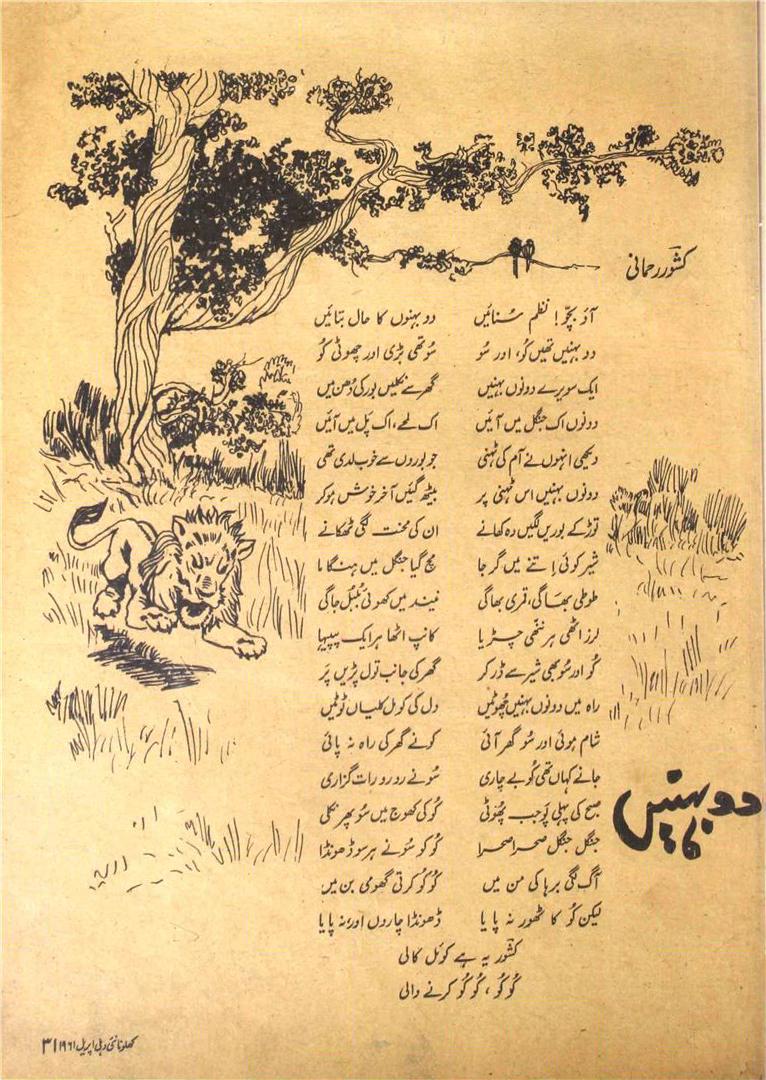 دو بہنیں
کشور رحمانی
آؤ بچّو! نظم سُنائیں دو بہنوں کا حال بتائیں
دو بہنیں تھیں کُو، اور سُو سُو تھی بڑی اور چھوٹی کُو
ایک سویرے دونوں بہنیں گھر سے نکلیں بور کی دُھن میں
دونوں اک جنگل میں آئیں اک لمحے، اک پَل میں آئیں
دیکھی انہوں نے آم کی ٹہنی جو بوروں سے خوب لدی تھی
دونوں بہنیں اس ٹہنی پر بیٹھ گئیں آخر خوش ہو کر
توڑ کے بوریں لگیں وہ کھانے ان کی محنت لگی ٹھکانے
شیر کوئی اِتنے میں گرجا مچ گیا جنگل میں ہنگاما
طوطی بھاگی، قمری بھاگی نیند میں کھوئی بُلبُل جاگی
لرز اٹھی ہر ننّھی چڑیا کانپ اٹھا ہر ایک پپیہا
کُو اور سُو بھی شیر سے ڈر کر گھر کی جانب تول پڑیں پَر
راہ میں دونوں بہنیں چُھوٹیں دل کی کومل کلیاں ٹوٹیں
شام ہوئی اور سُو گھر آئی کو نے گھر کی راہ نہ پائی
جانے کہاں تھی کُو بے چاری سُو نے رو رو رات گزاری
صبح کی پہلی پَو جب پُھوٹی کُو کی کھوج میں سُو پھر نکلی
جنگل جنگل صحرا صحرا کُو کو سُو نے ہر سو ڈھونڈا
آگ لگی برہا کی من میں کُو کُو کرتی گھومی بن میں
لیکن کُو کا ٹھور نہ پایا ڈھونڈا چاروں اور، نہ پایا
کشور یہ ہے کوئل کالی
کُو کُو، کُو کُو کرنے والی
کھلونا نئی دہلی اپریل ۱۹۶۱ ۳۱